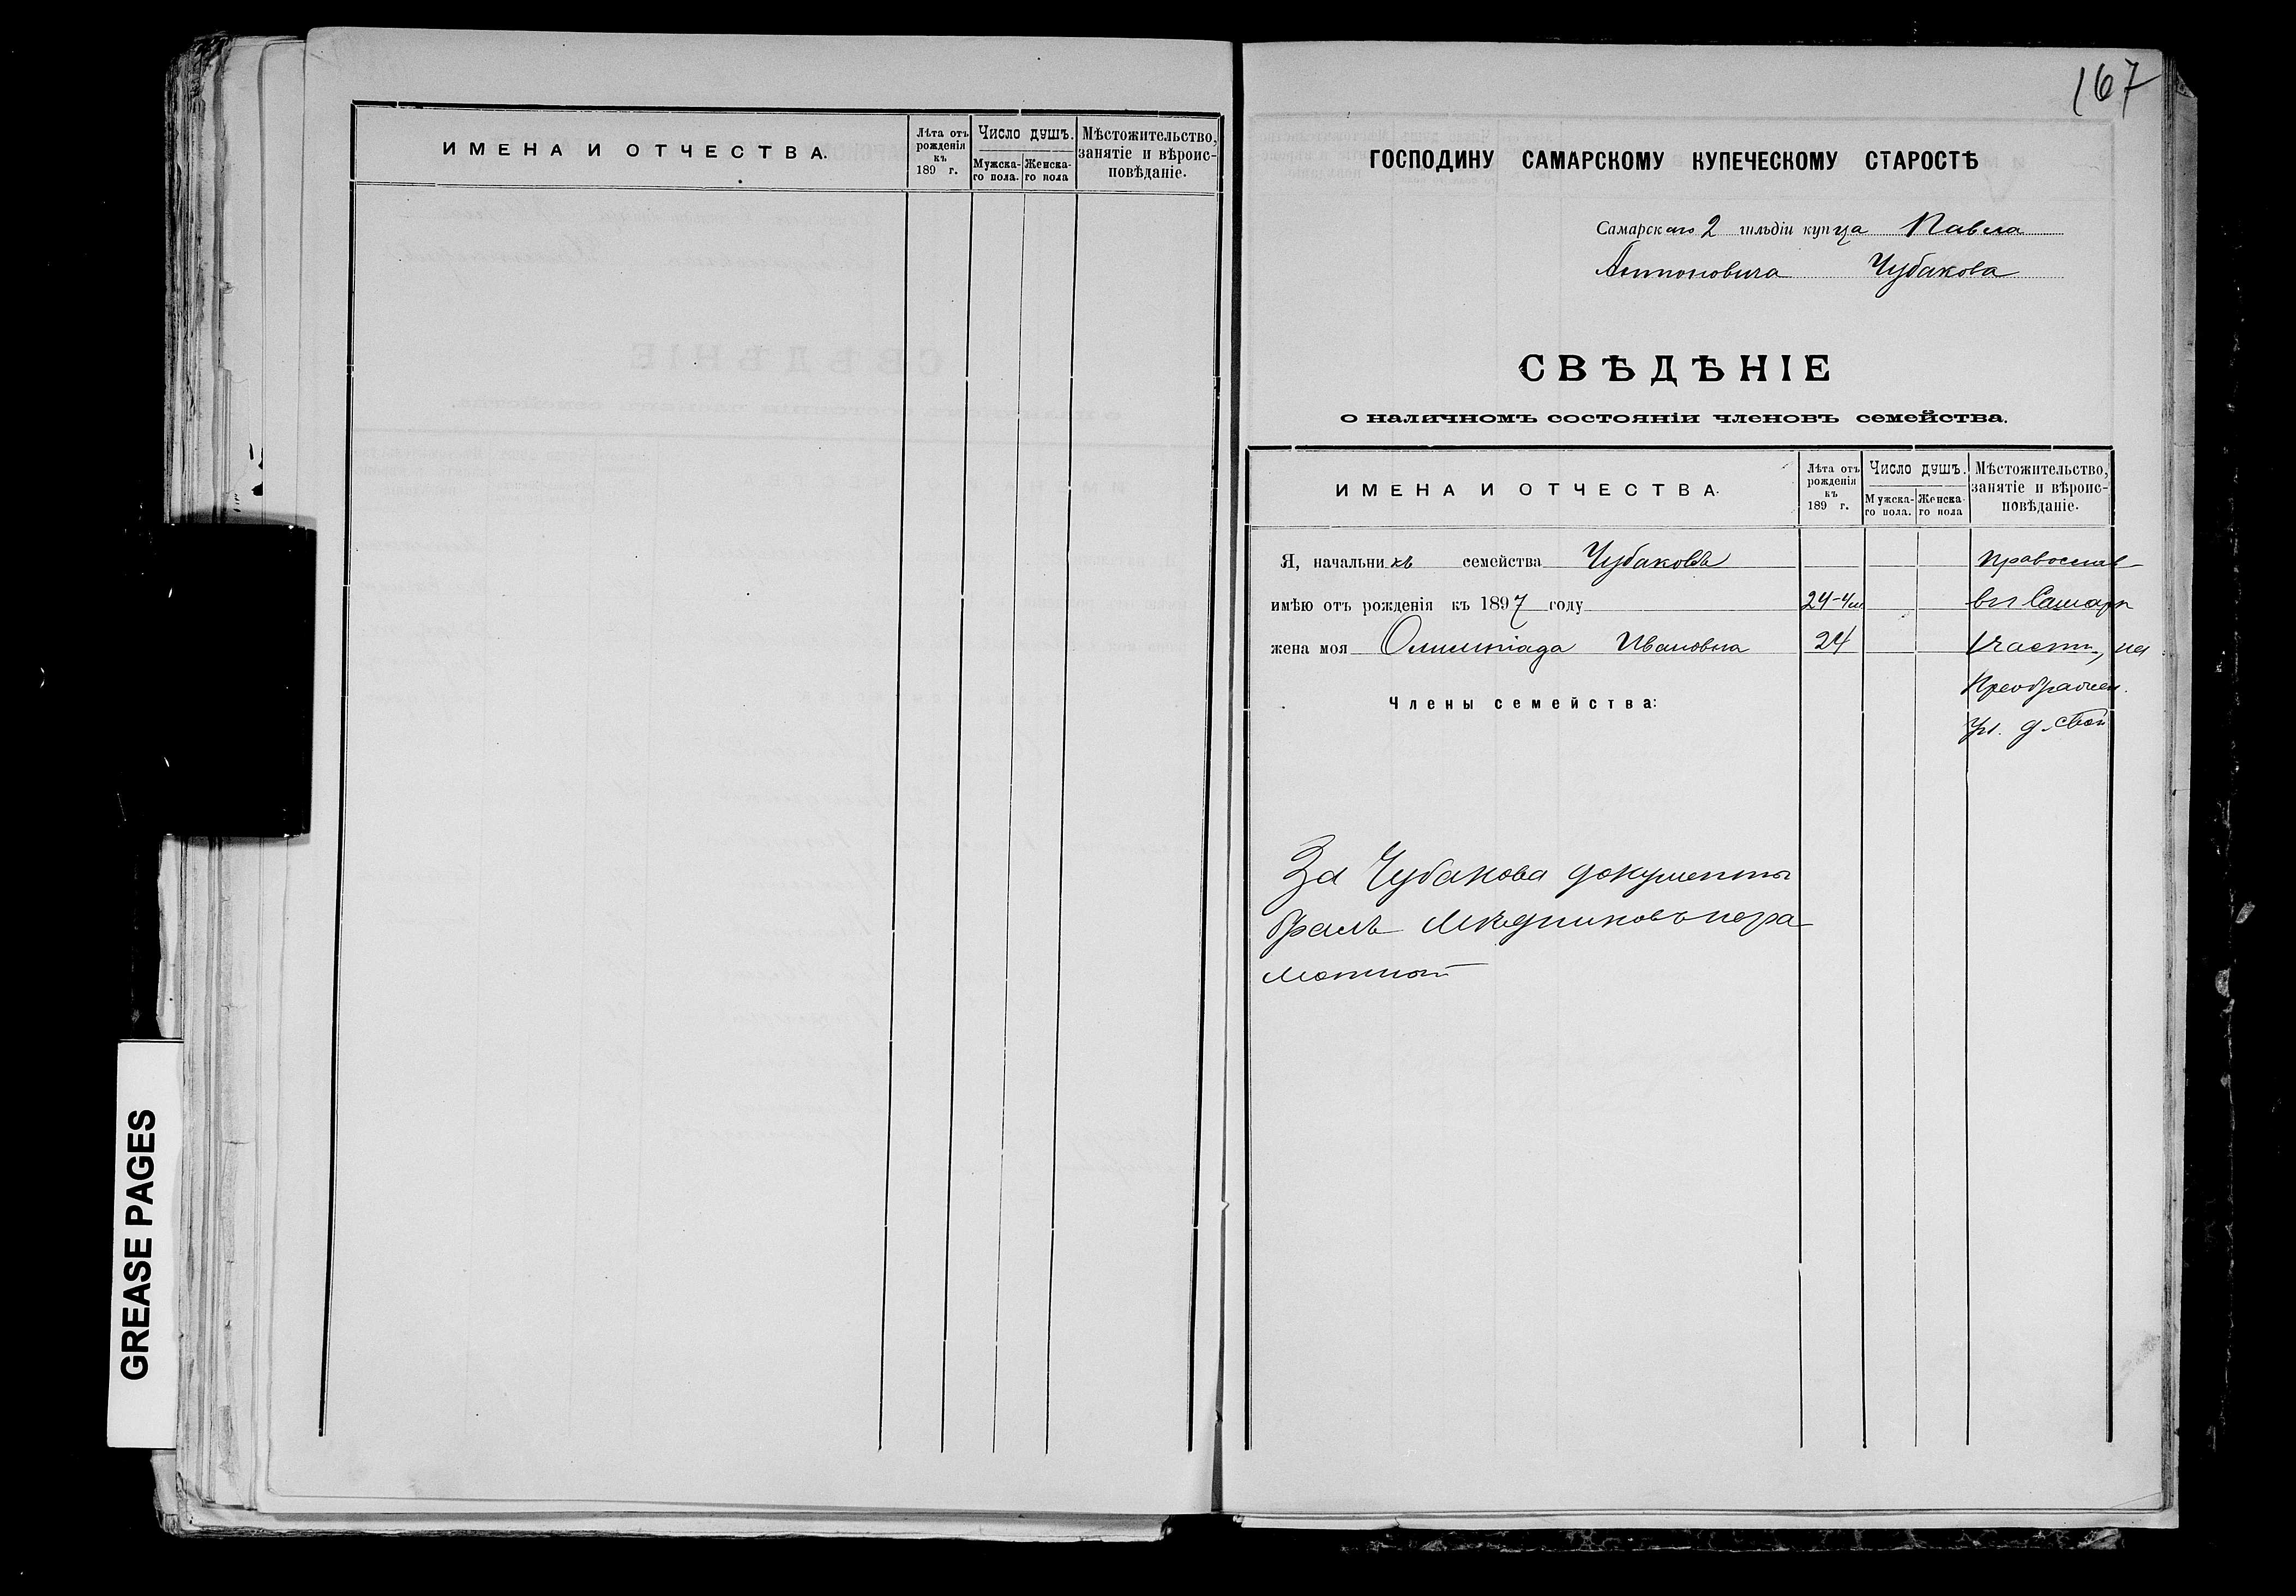 ИМЕНА И ОТЧЕСТВА.
Лѣта отъ рожденія къ 189 г.
Число душъ.
Мужска-го пола.
Женска-го пола
Мѣстожительство, занятіе и вѣроис-повѣданіе.
167
ГОСПОДИНУ САМАРСКОМУ КУПЕЧЕСКОМУ СТАРОСТѢ
Самарскаго 2 гильдіи купца Павла
Антоновича Чубакова
СВѢДѢНІЕ
о наличномъ состояніи членовъ семейства.
ИМЕНА И ОТЧЕСТВА.
Лѣта отъ рожденія къ 189 г.
Число душъ.
Мужска-го пола.
Женска-го пола
Мѣстожительство, занятіе и вѣроис-повѣданіе.
Я, начальникъ семейства Чубаковъ православ-
имѣю отъ рожденія къ 1897 году 24 въ Самар
жена моя Олимпіада Ивановна 24 части, на
Преображен.
Члены семейства:
ул. д. свой
За Чубакова документы
бралъ Мѣдниковъ негра
мотный
GREASE PAGES